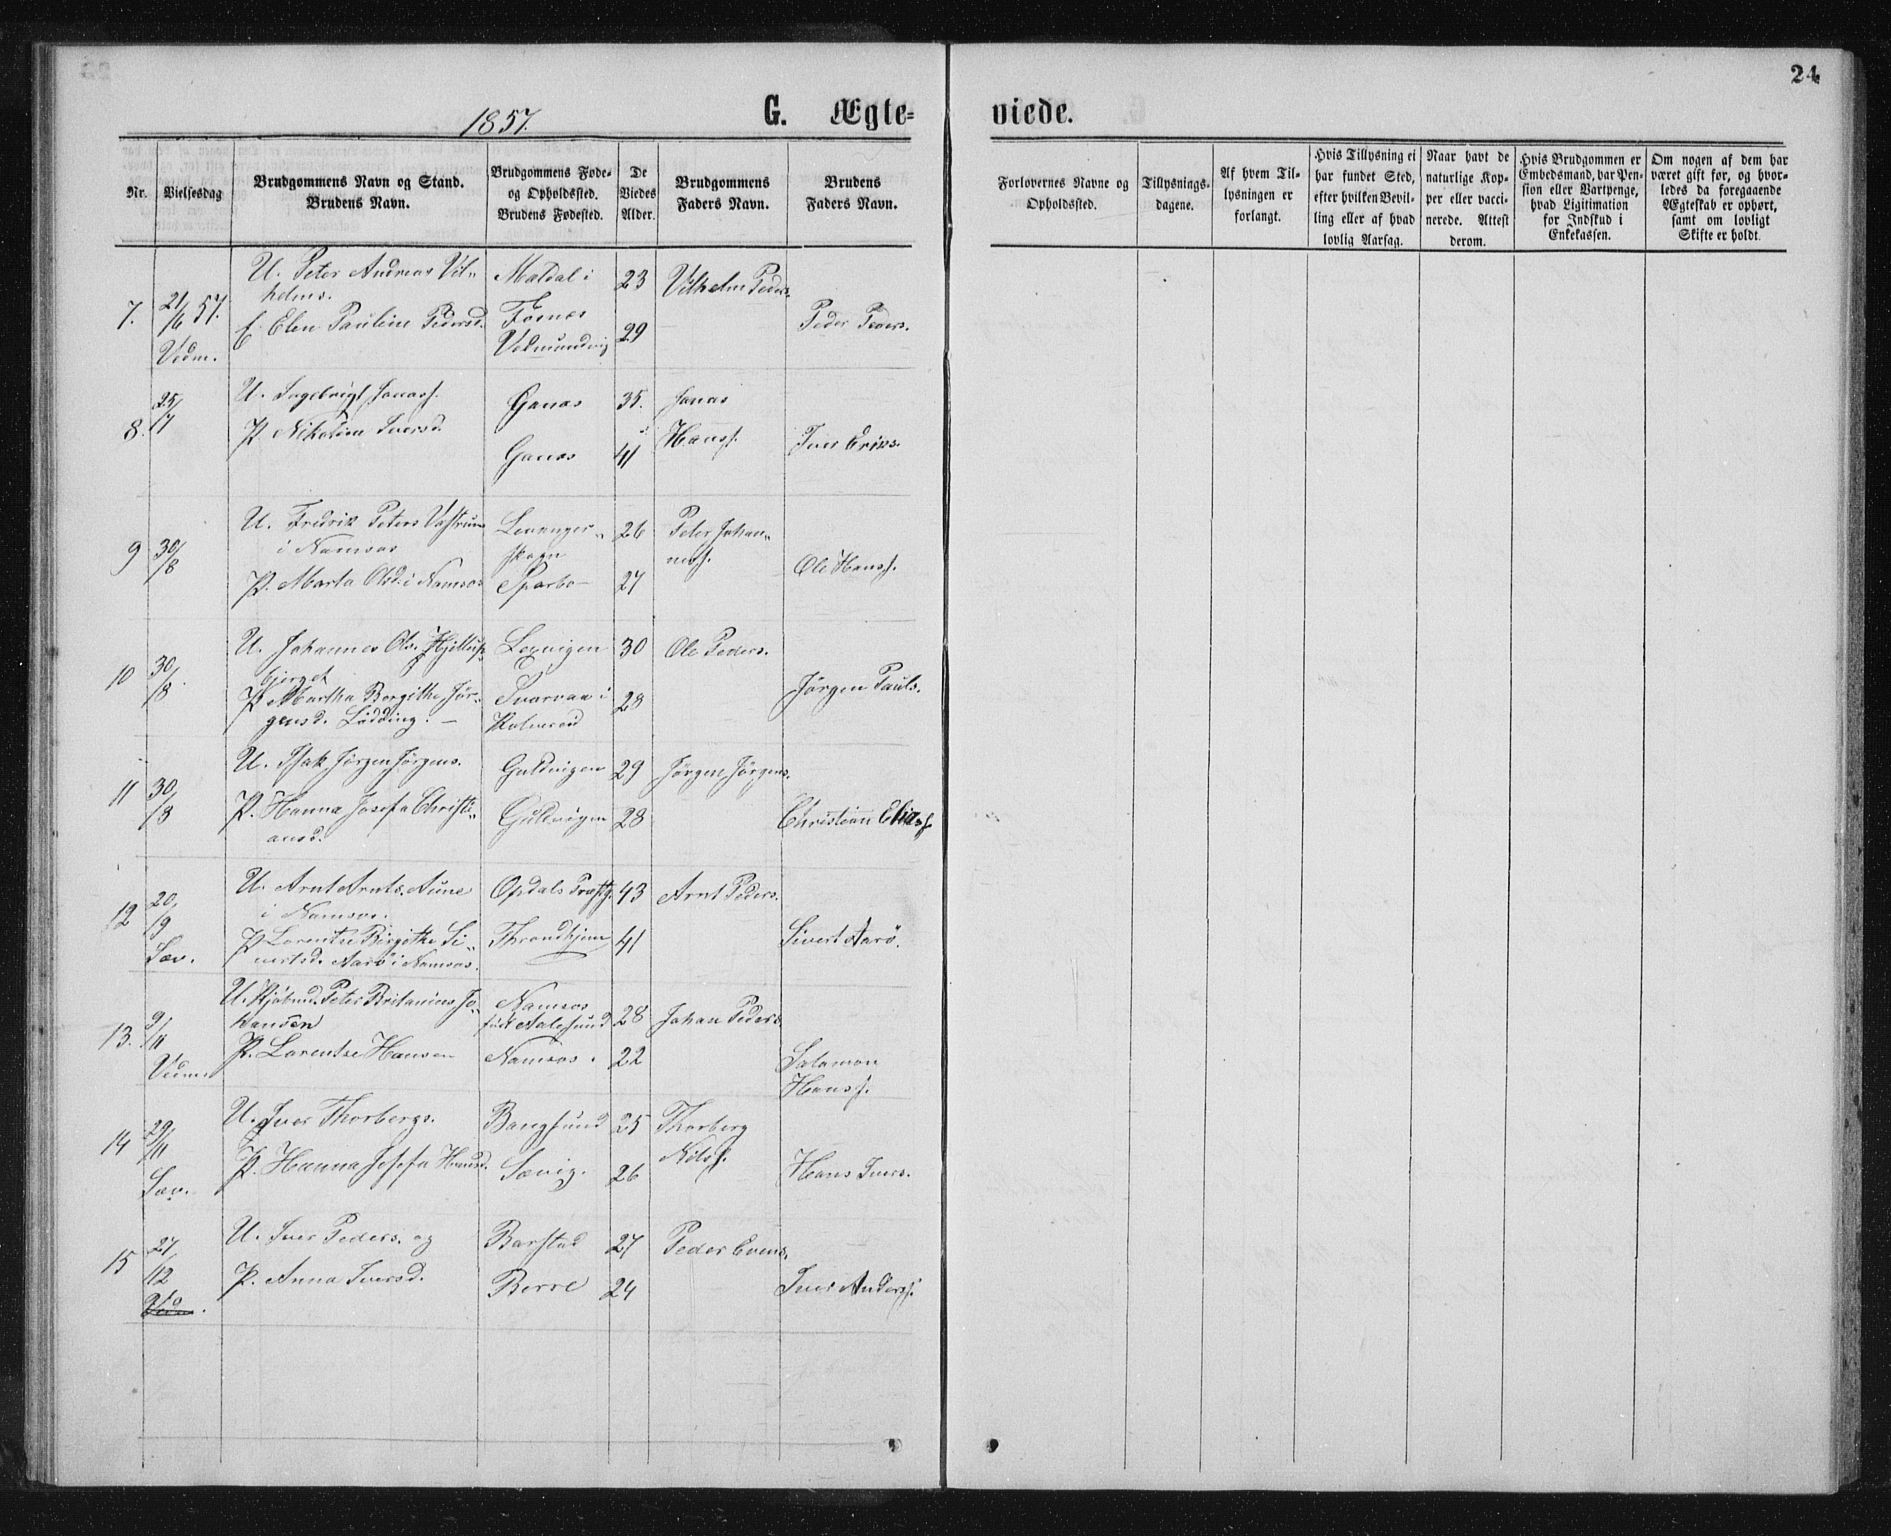 24
1857.
G. Ægte=
viede.
Nr.
Vielsesdag
Brudgommens Navn og Stand.
Brudens Navn.
Brudgommens Føde=
og Opholdssted.
Brudens Fødested.
De
Viedes
Alder.
Brudgommens
Faders Navn.
Brudens
Faders Navn.
Forlovernes Navne og
Opholdssted.
Tillysnings-
dagene.
Af hvem Til-
lysningen er
forlangt.
Hvis Tillysning ei
har fundet Sted,
efter hvilken Bevil-
ling eller af hvad
lovlig Aarsag.
Naar havt de
naturlige Kop-
per eller vacci-
nerede. Attest
derom.
Hvis Brudgommen er
Embedsmand, har Pen-
sion eller Vartpenge,
hvad Ligitimation
for Indskud i
Enkekassen.
Om nogen af dem har
været gift før, og hvor-
ledes da foregaaende
Ægteskab er ophørt,
samt om lovligt
Skifte er holdt.
7.
21/6 57.
Vedm.
U. Peter Andreas Vil-
helms.
E. Elen Pauline Pedersd.
Maldal i
Fosnes
23
29
Vilhelm Peders.
Peder Peders.
8.
25/7
U. Ingebrigt Jonass.
P. Nikoline Iversd.
Ganæs
Ganæs
35.
41
Jonas
Hanss.
Iver Eriks.
9
30/8
U. Fredrik Peters
i Namsos
P. Marta Olsd. i Namsos
Levanger-
skogn
Sparbo
26
27
Peter Johan-
ness.
Ole Hanss.
10
30/8.
U. Johannes Ols.
bjerget
P. Martha Bergitha Jør-
gensd. Lødding. -
Lexvigen
i
30
28
Ole Peders.
Jørgen Pauls.
11
30/8
U. Isak Jørgen Jørgens.
P. Hanna Josefa Christi-
ansd.
Guldvigen
Guldvigen
29
28
Jørgen Jørgens.
Christian Eliass
12
20/9
Sæv.
U. Arnt Arnts. Aune
i Namsos.
P. Lorentse Birgitha Si-
vertsd. Aarö i Namsos.
Opdals Præstg.
Throndhjem
43
41
Arnt Peders.
Sivert Aarö.
13.
9/11
Vedm.
U. Kjøbmd. Peter Britanius Jo-
hansen
P. Lorentse Hansen
Namsos
født Aalesund
Namsos.
28
22
Johan Peders.
Salamon
Hanss.
14
29/11
Sæv.
U. Iver Thorbergs.
P. Hanna Josefa Hansd.
Bangsund
Sævig.
25
26
Thorberg
Nilss.
Hans Ivers.
15
27/12
U. Iver Peders. og
P. Anna Iversd.
Barstad
Berre
27
24
Peder Evens.
Iver Anderss.